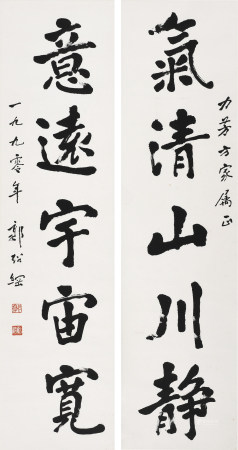 力芳方家属正
氣清山川靜
意遠宇宙寬
一九九零年